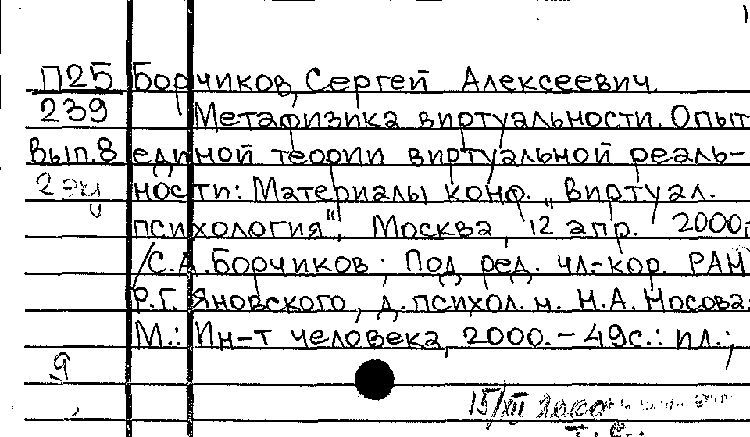 П25 Борчиков, Сергей Алексеевич.
239 Метафизика виртуальности. Опыт
Вып.8 единой теории виртуальной реаль-
2 экз ности: Материалы конф. „Виртуал.
психология", Москва, 12 апр. 2000г.
/С.А.Борчиков; Под ред. чл-кор. РАН
Р.Г. Яновского, д. психол. н. Н.А. Носова.
М.: Ин-т человека, 2000. – 49с.: ил.;
9
15/XII 2000